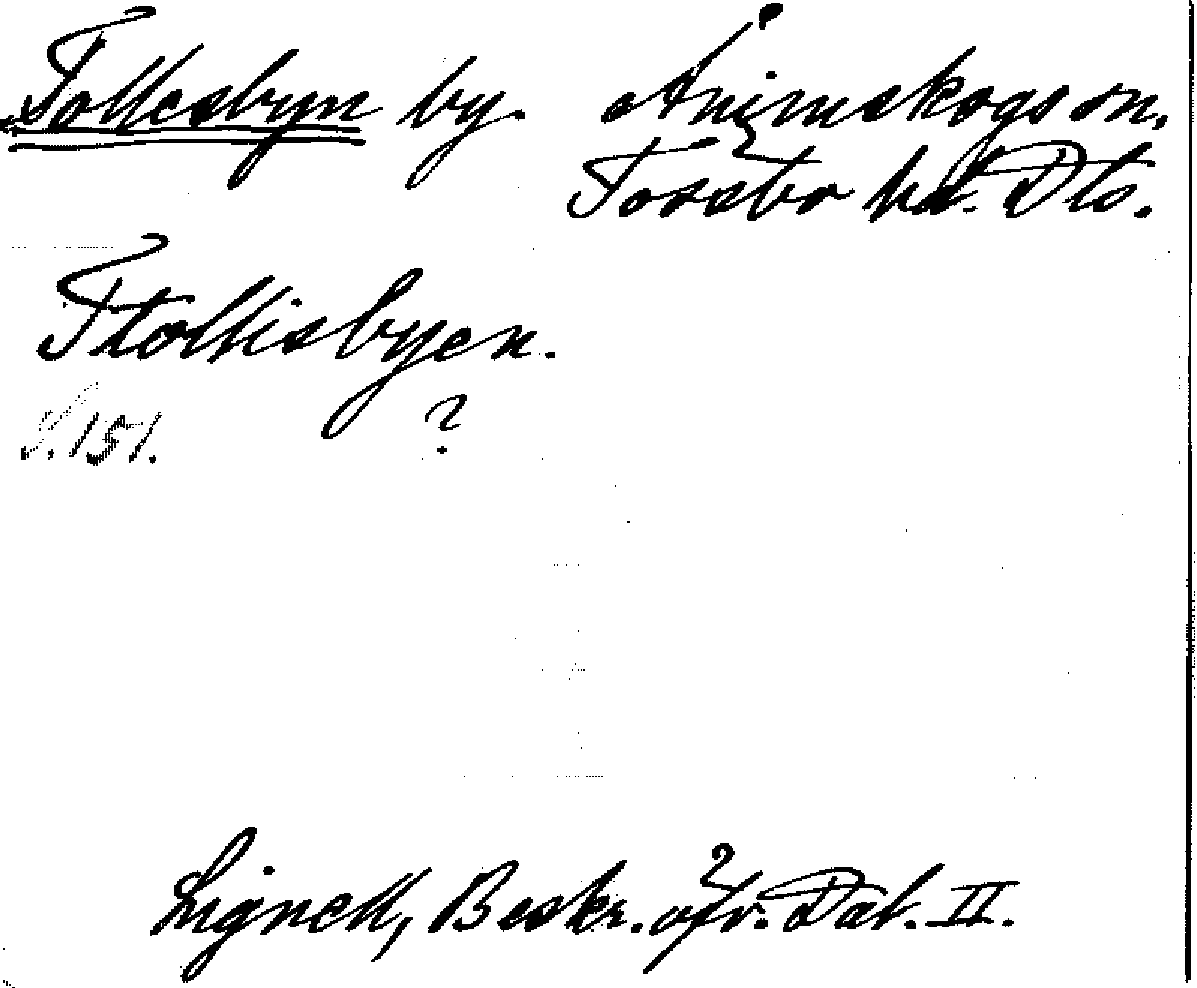 Follesbyn by. Ånimskogs sn.
Tössbo hd. Dls.
Ftollisbyen.
S. 151. ?
Lignell, Beskr. öfr. Dal. II.